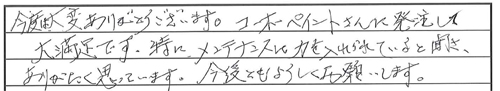 今度は大変ありがとうございます。コーホーペイントさんに発注して
大満足です。特に、メンテナンスに力を入れられていると聞き、
ありがたく思っています。今後ともよろしくお願いします。